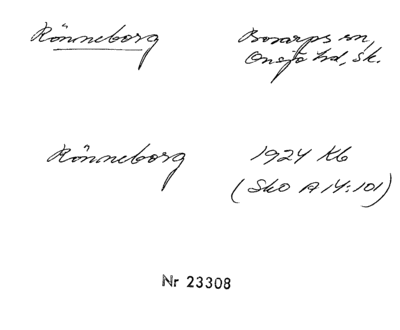 Rönneborg
Bosarps sn,
Onsjö hd, Sk.
Rönneborg
1924 Kb
(Sko A 14:101)
Nr 23308